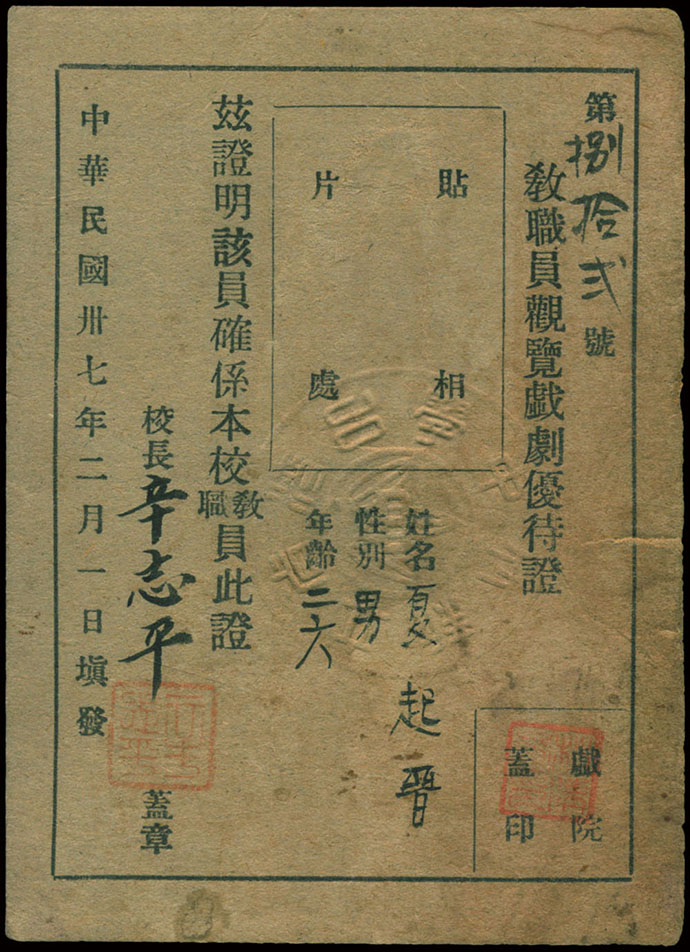 第捌拾弍號
教職員觀覽戲劇優待證
戲院
蓋印
貼相
片處
姓名夏起晋
性別男
年齡二六
茲證明該員確係本校教職員此證
校長辛志平
蓋章
中華民國卅七年二月一日塡發